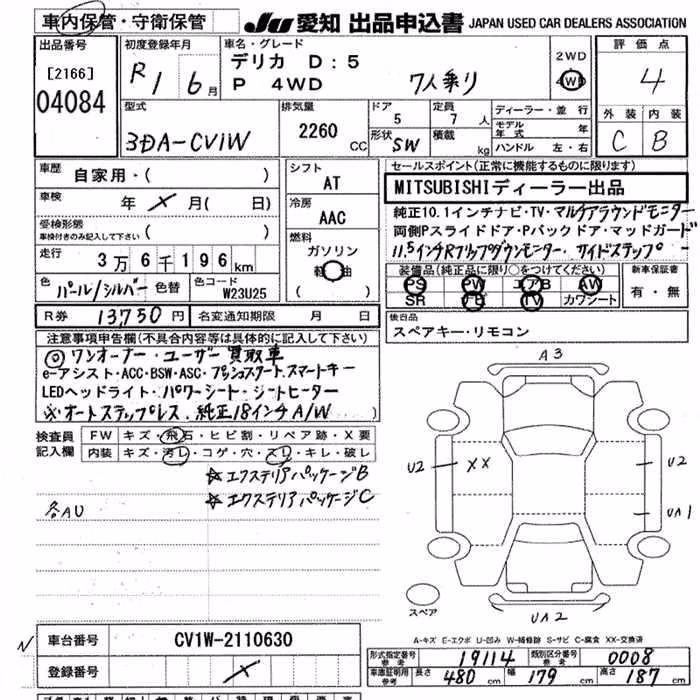 車内保管・守衛保管
JU 愛知 出品申込書 JAPAN USED CAR DEALERS ASSOCIATION
出品番号
[2166]
04084
初度登録年月
R1 6月
車名・グレード
デリカ D:5
P 4WD 7人乗り
2WD
4WD
評価点
4
外装 内装
C B
型式
3DA-CV1W
排気量
2260 CC
ドア
5
形状 SW
定員
7 人
積載 kg
ディーラー・並行
モデル年式 年
ハンドル 左・右
車歴 自家用・( )
車検 年 × 月( 日)
受検形態
車検付きのみ記入して下さい ( )
走行 3万6千196km
色 パール/シルバー 色替
色コード
W23U25
シフト
AT
冷房
AAC
燃料
ガソリン
軽油
( )
R券 13,750円 名変通知期限 月 日
セールスポイント(正常に機能するものに限ります)
MITSUBISHIディーラー出品
純正10.1インチナビ・TV・マルチアラウンドモニター
両側Pスライドドア・Pバックドア・マッドガード
11.5インチRフリップダウンモニター・サイドステップ
装備品(純正品に限り○をつけてください)
PS PW エアB AW
SR ナビ TV カワシート
新車保証書
有・無
後日品
スペアキー・リモコン
注意事項申告欄(不具合内容等は具体的に記入して下さい)
◎ワンオーナー・ユーザー買取車
e-アシスト・ACC・BSW・ASC・プッシュスタート スマートキー
LEDヘッドライト・パワーシート・シートヒーター
※オートステップレス、純正18インチA/W
検査員記入欄
FW キズ・飛石・ヒビ割・リペア跡・X要
内装 キズ・汚レ・コゲ・穴・スレ・キレ・破レ
☆エクステリアパッケージB
☆エクステリアパッケージC
各AU
A3
U2 XX U2
UA1
スペア
UA2
A-キズ E-エクボ U-凹み W-補修跡 S-サビ C-腐食 XX-交換済
N
車台番号 CV1W-2110630
登録番号 ×
形式指定番号 参考 19114 類別区分番号 参考 0008
車庫証明用 参考 長さ 480cm 幅 179cm 高さ 187cm